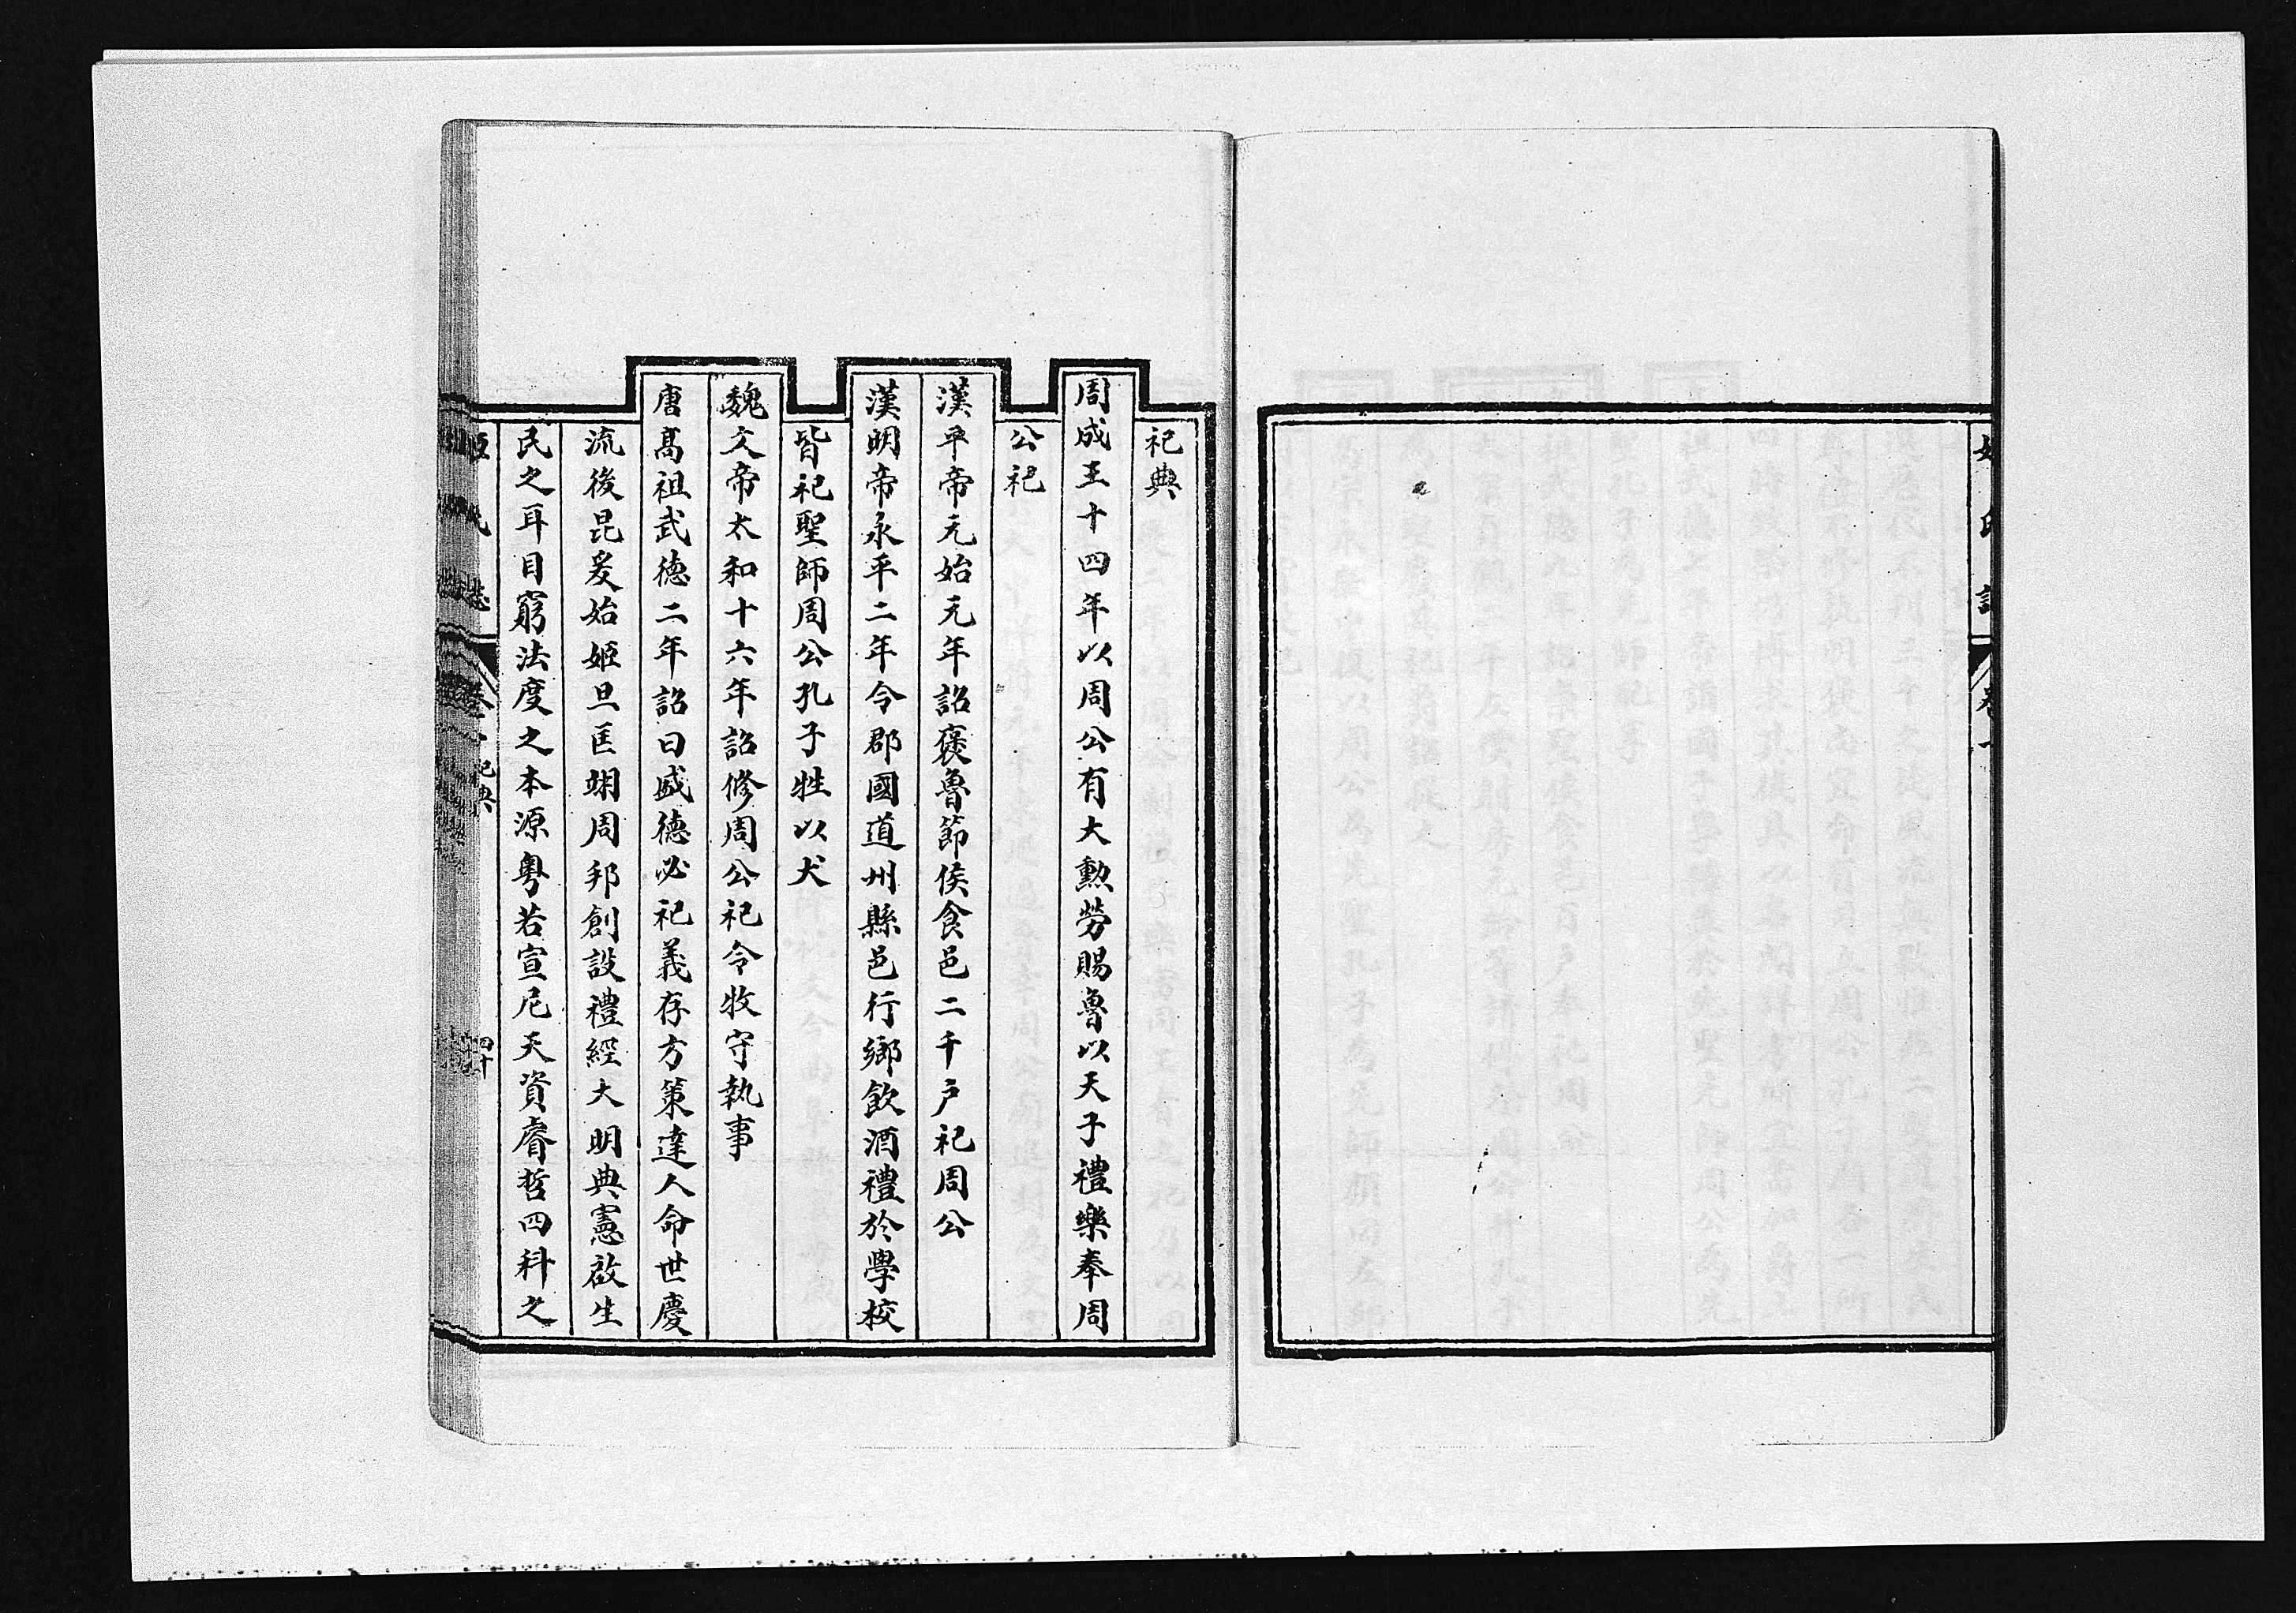 姬氏誌 卷一
祀典
周成王十四年以周公有大勲勞賜魯以天子禮樂奉周
公祀
漢平帝元始元年詔褒魯節侯食邑二千戶祀周公
漢明帝永平二年令郡國道州縣邑行鄉飲酒禮於學校
皆祀聖師周公孔子牲以犬
魏文帝太和十六年詔修周公祀令牧守執事
唐髙祖武德二年詔曰盛德必祀義存方策達人命世慶
流後昆爰始姬旦匡翊周邦創設禮經大明典憲啟生
民之耳目窮法度之本源粤若宣尼天資睿哲四科之
姬氏誌 卷一 祀典 四十